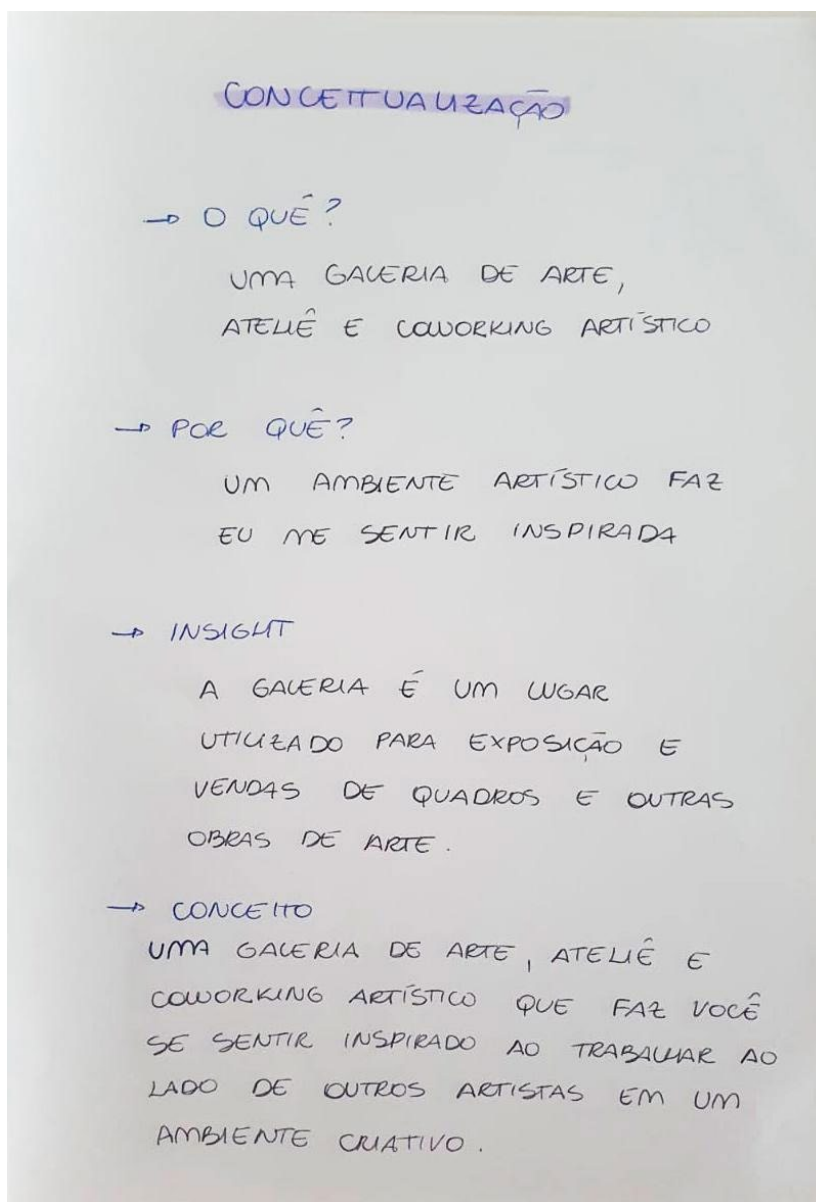 CONCEITUALIZAÇÃO
→ O QUÊ?
UMA GALERIA DE ARTE,
ATELIÊ E COWORKING ARTÍSTICO
→ POR QUÊ?
UM AMBIENTE ARTÍSTICO FAZ
EU ME SENTIR INSPIRADA
→ INSIGHT
A GALERIA É UM LUGAR
UTILIZADO PARA EXPOSIÇÃO E
VENDAS DE QUADROS E OUTRAS
OBRAS DE ARTE.
→ CONCEITO
UMA GALERIA DE ARTE, ATELIÊ E
COWORKING ARTÍSTICO QUE FAZ VOCÊ
SE SENTIR INSPIRADO AO TRABALHAR AO
LADO DE OUTROS ARTISTAS EM UM
AMBIENTE CRIATIVO.